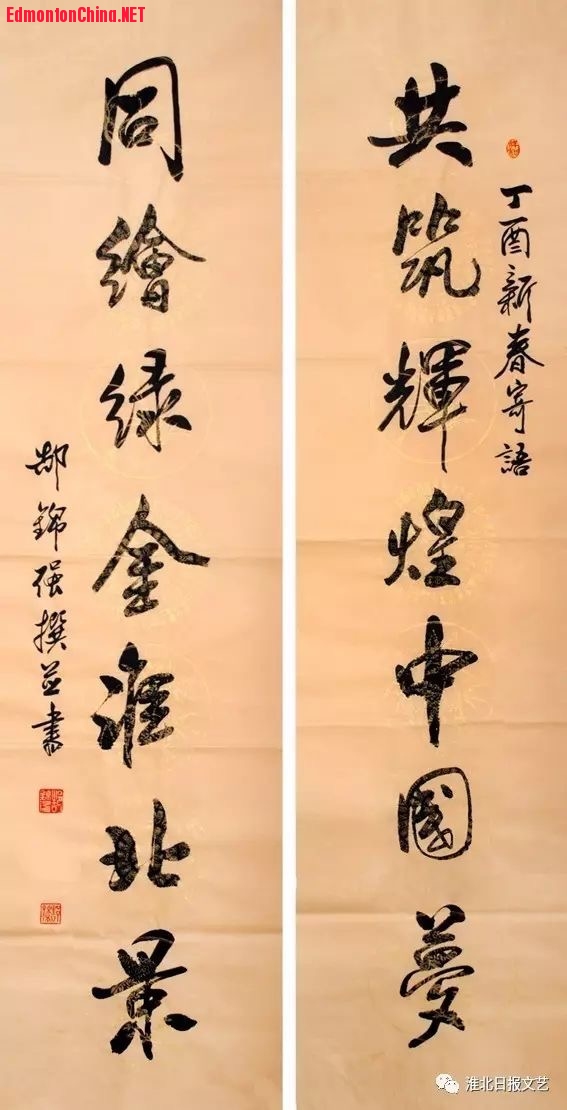 EdmontonChina.NET
丁酉新春寄語
共筑輝煌中國夢
同繪绿金淮北景
郝錦强撰並書
淮北日报文艺